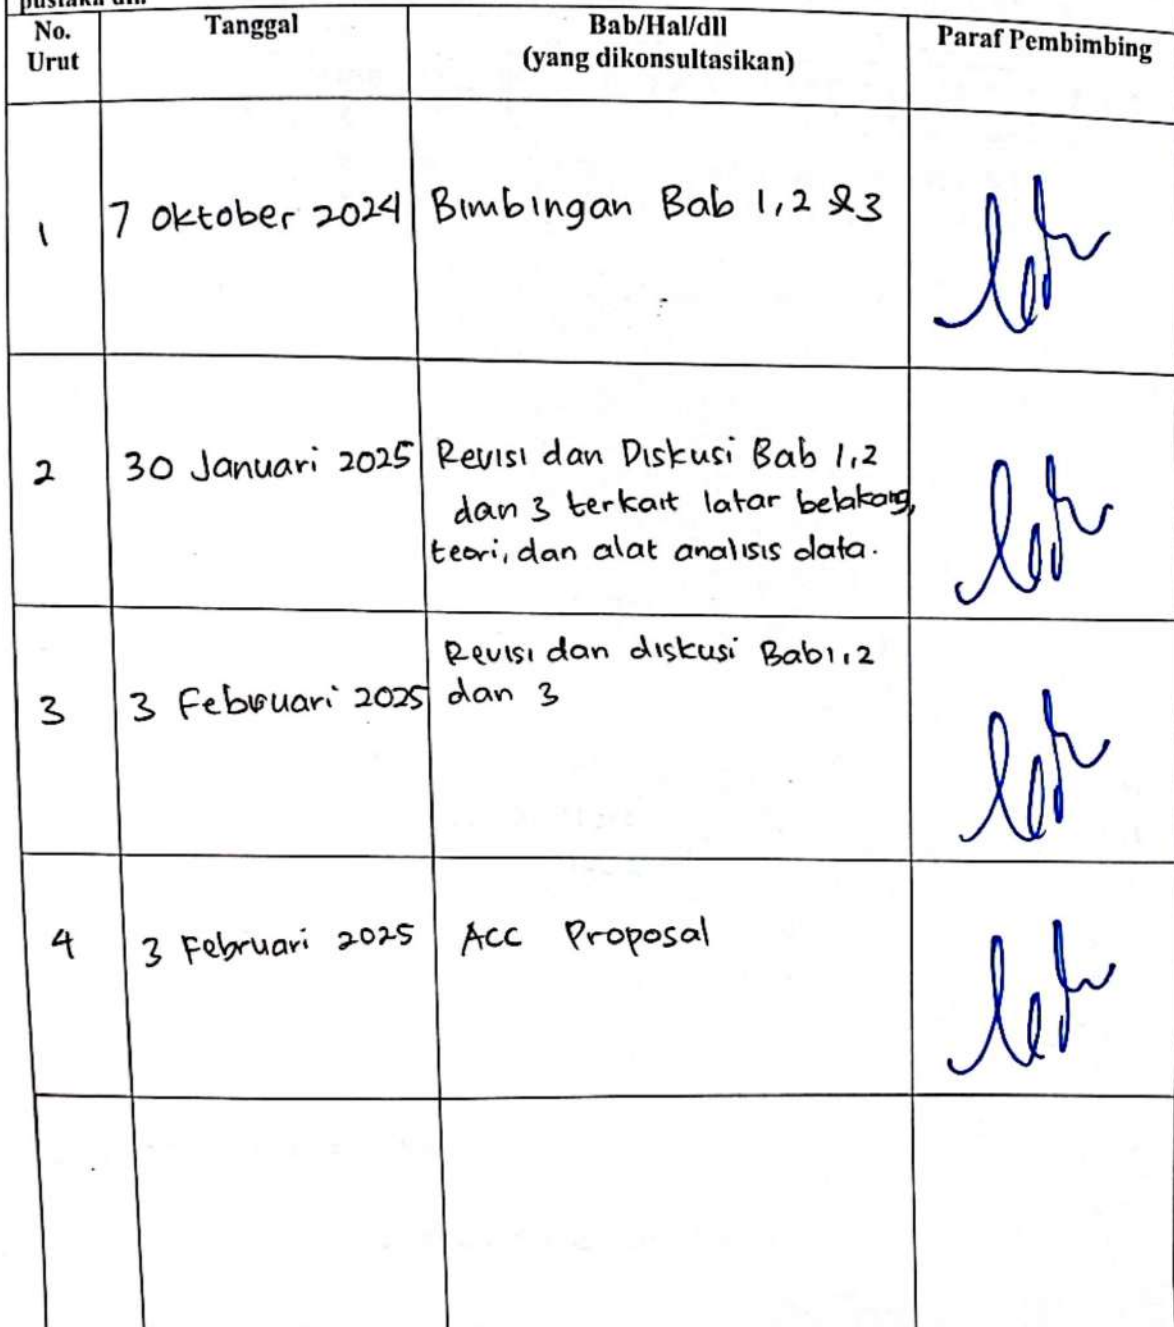 No.
Urut
Tanggal
Bab/Hal/dll
(yang dikonsultasikan)
Paraf Pembimbing
1
7 Oktober 2024
Bimbingan Bab 1,2 & 3
2
30 Januari 2025
Revisi dan Diskusi Bab 1,2
dan 3 terkait latar belakang,
teori, dan alat analisis data.
3
3 Februari 2025
Revisi dan diskusi Bab 1,2
dan 3
4
3 Februari 2025
Acc Proposal